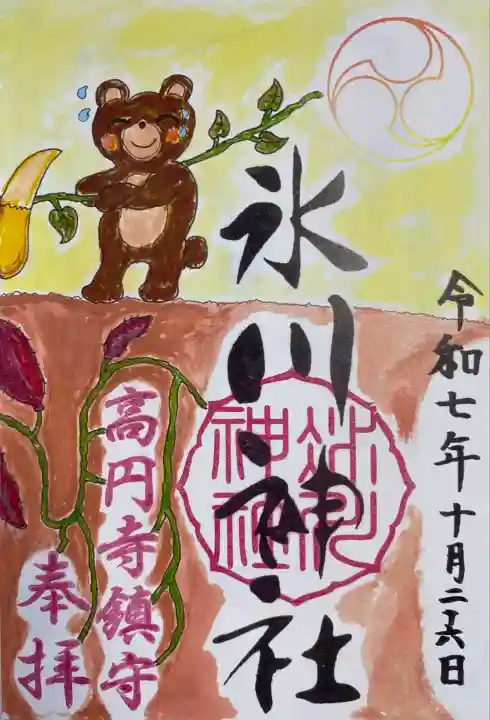 令和七年十月二十六日
氷川神社
氷川神社
高円寺鎮守
奉拝